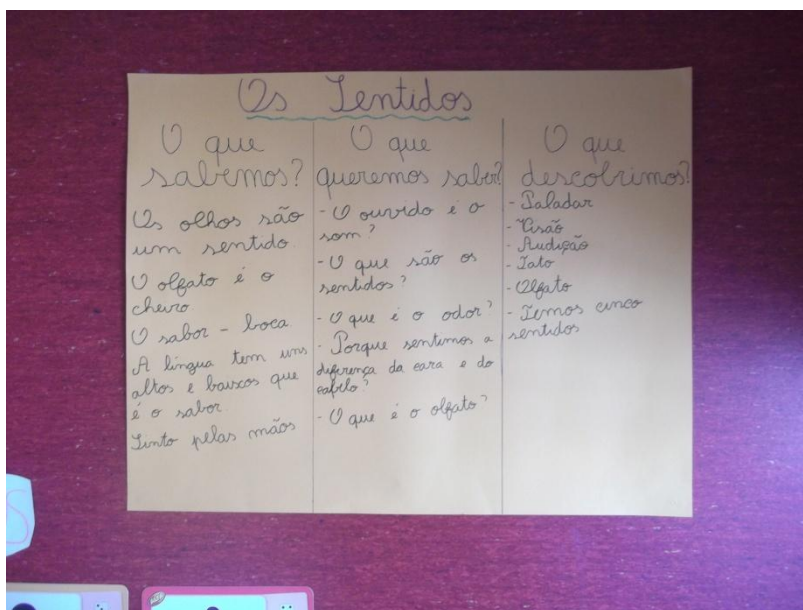 Os Sentidos
O que
sabemos?
Os olhos são
um sentido.
O olfato é o
cheiro
O sabor - boca
A língua tem uns
altos e baixos que
é o sabor.
Sinto pelas mãos
O que
queremos saber?
- O ouvido é o
som?
- O que são os
sentidos?
- O que é o odor?
- Porque sentimos a
diferença da cara e do
cabelo?
- O que é o olfato?
O que
descobrimos?
- Paladar
- Visão
- Audição
- Tato
- Olfato
- Temos cinco
sentidos
S